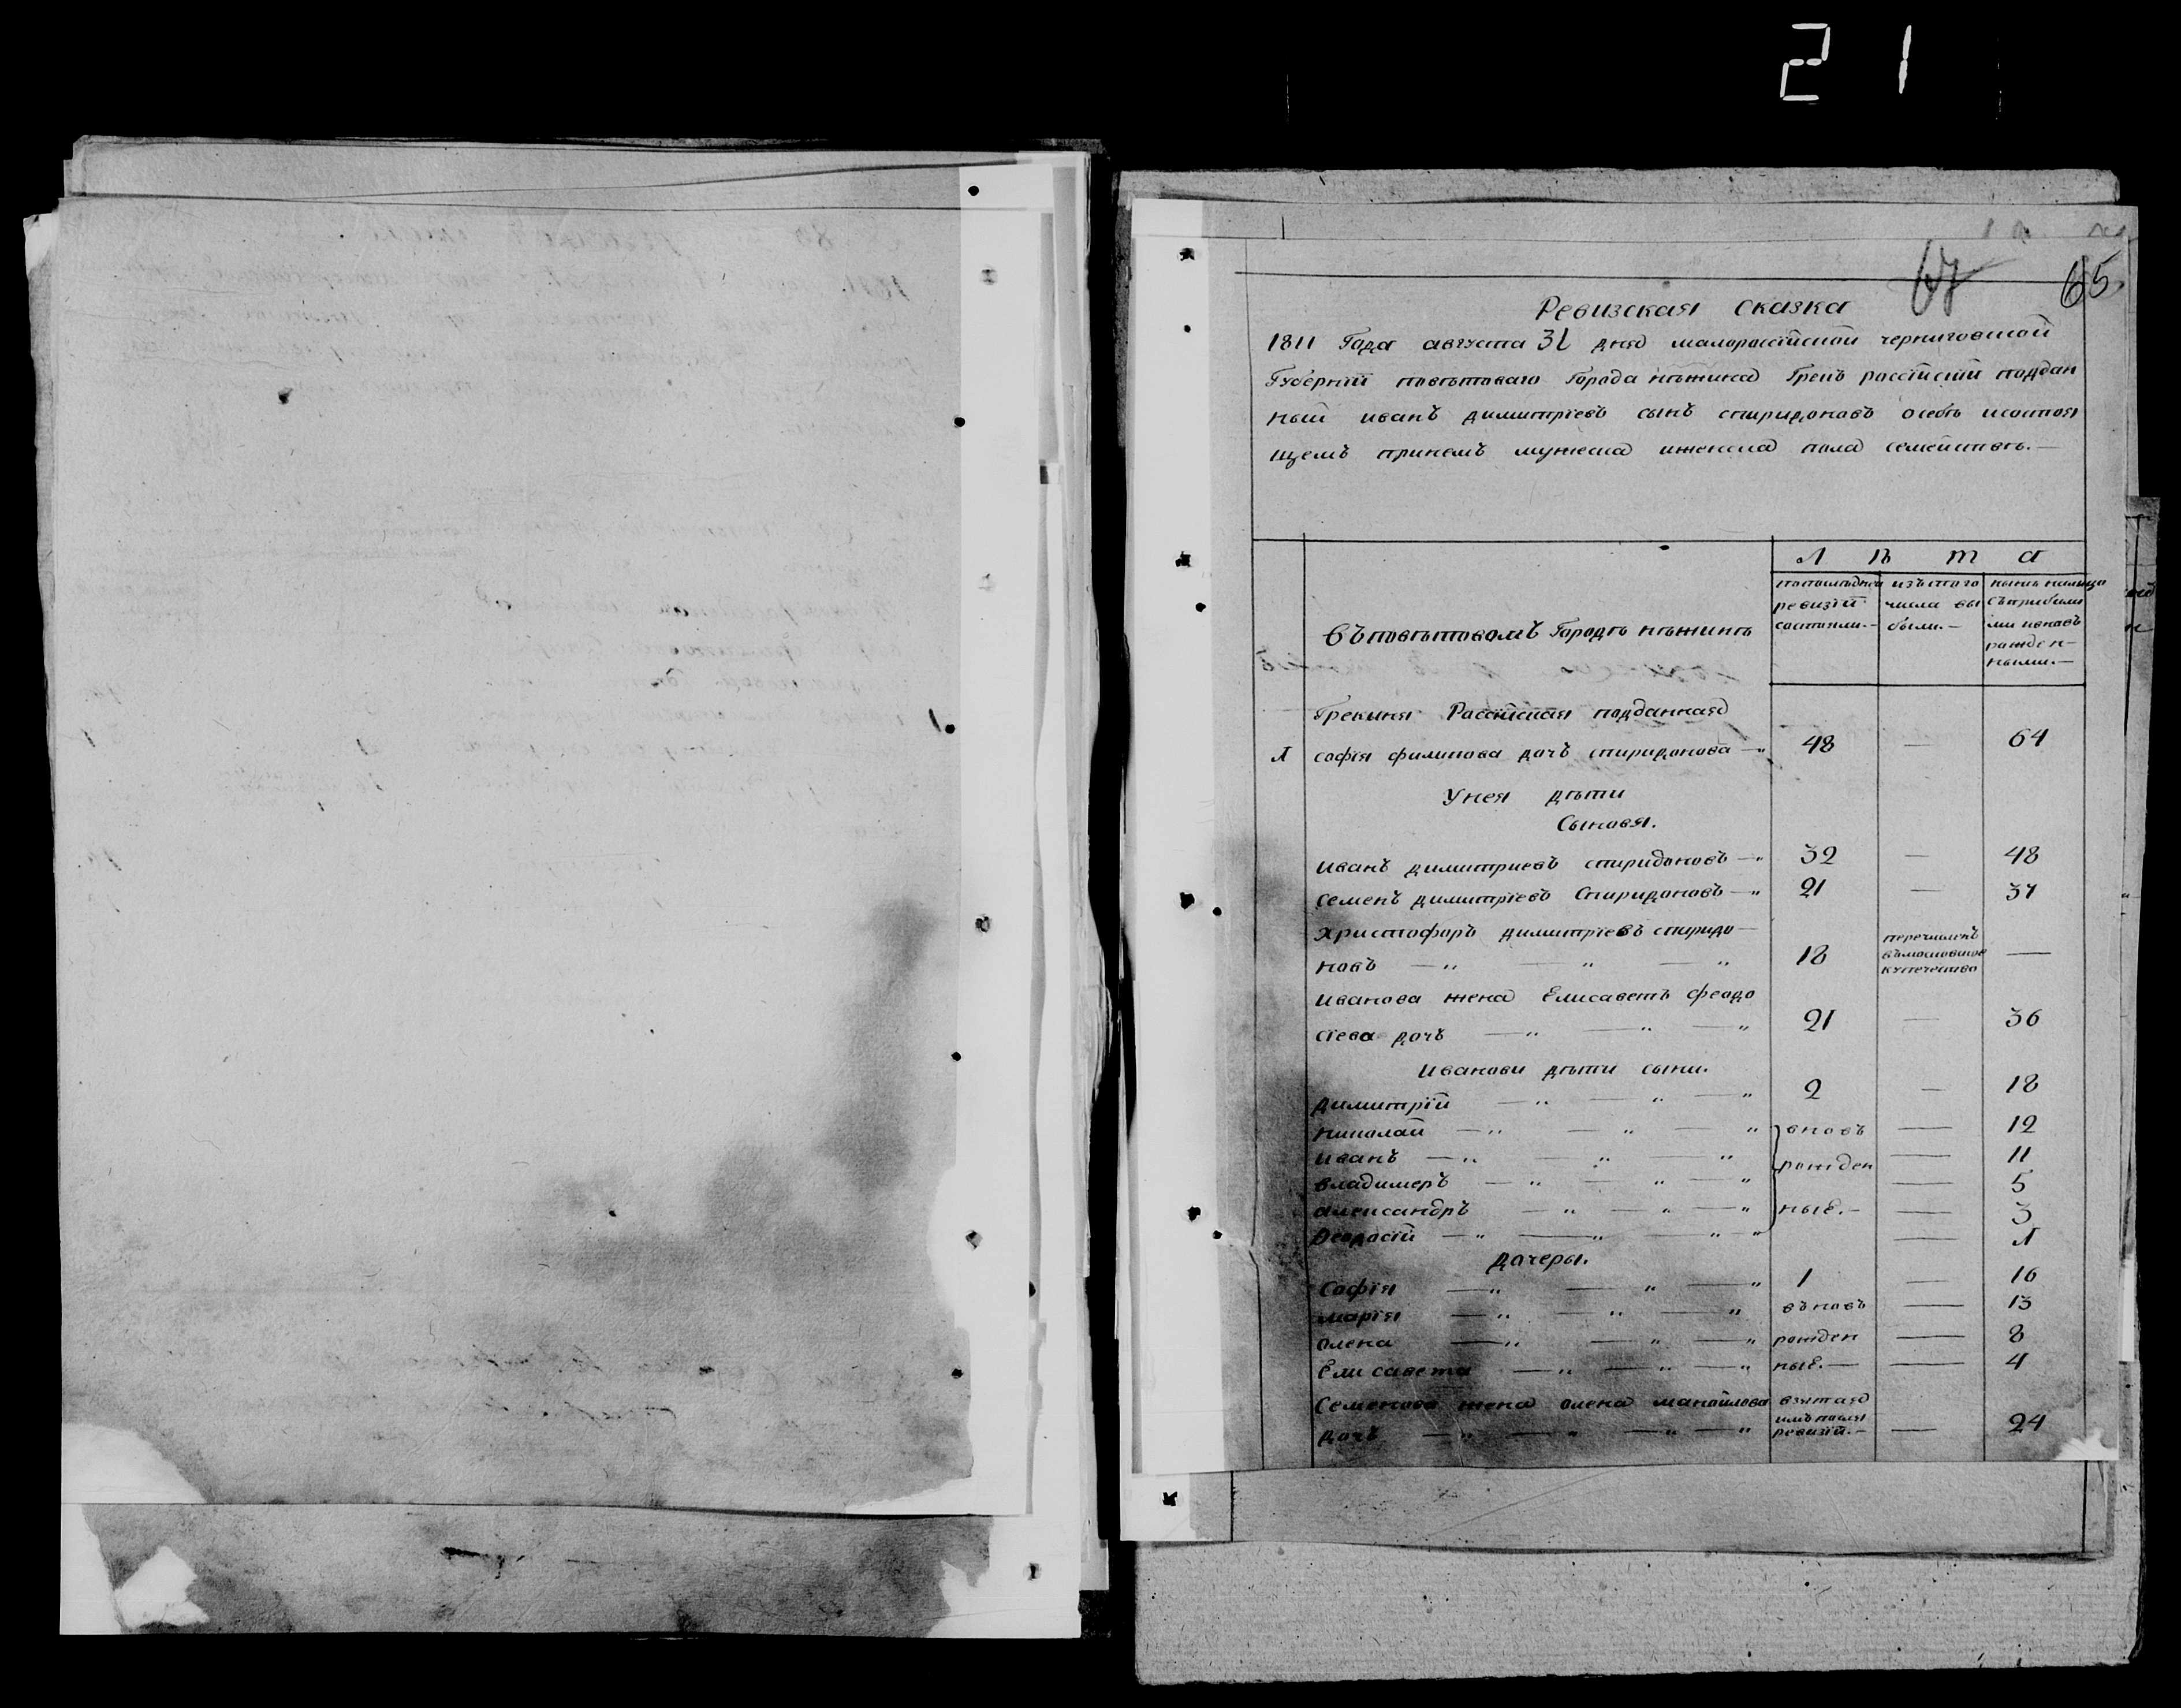 21
67
65
Ревизская сказка
1811 Года августа 31 дня малороссійской черниговской
Губерніи повѣтоваго Города нѣжина Грекъ россійскій поддан
ный иванъ димитріевъ сынъ спиридоновъ о себѣ и состоя
щемъ принемъ мужеска иженска пола семействѣ.—
въ повѣтовомъ Городѣ нѣжинѣ
Л ѣ т а
попоследней ревизіи состояли.—
изътого числа вы были.—
нынѣ налицо съприбылы ми ивновь рожден ными.—
Грекиня Россійская подданная
1 софія филипова дочъ спиридонова — 48 — 64
Унея дѣти
Сыновя.
иванъ димитриевъ спиридоновъ — 32 — 48
семенъ димитріевъ Спиридоновъ — 21 — 37
христофоръ димитріевъ спиридо—
новъ — 18 перечисленъ въмосковское купечество —
иванова жена Елисаветъ феодо
сіева дочъ — 21 — 36
ивановы дѣти сыны.
димитрій — 2 — 18
николай — вновъ — 12
иванъ — рожден — 11
владимеръ — — 5
александръ — ные.— — 3
Феодосій — — 1
дочеры.
Софія — 1 — 16
марія — въновъ — 13
олена — рожден — 8
Елисавета — ные.— — 4
Семенова жена олена манойлова взятая
дочъ — имъ посля ревизіи.— — 24